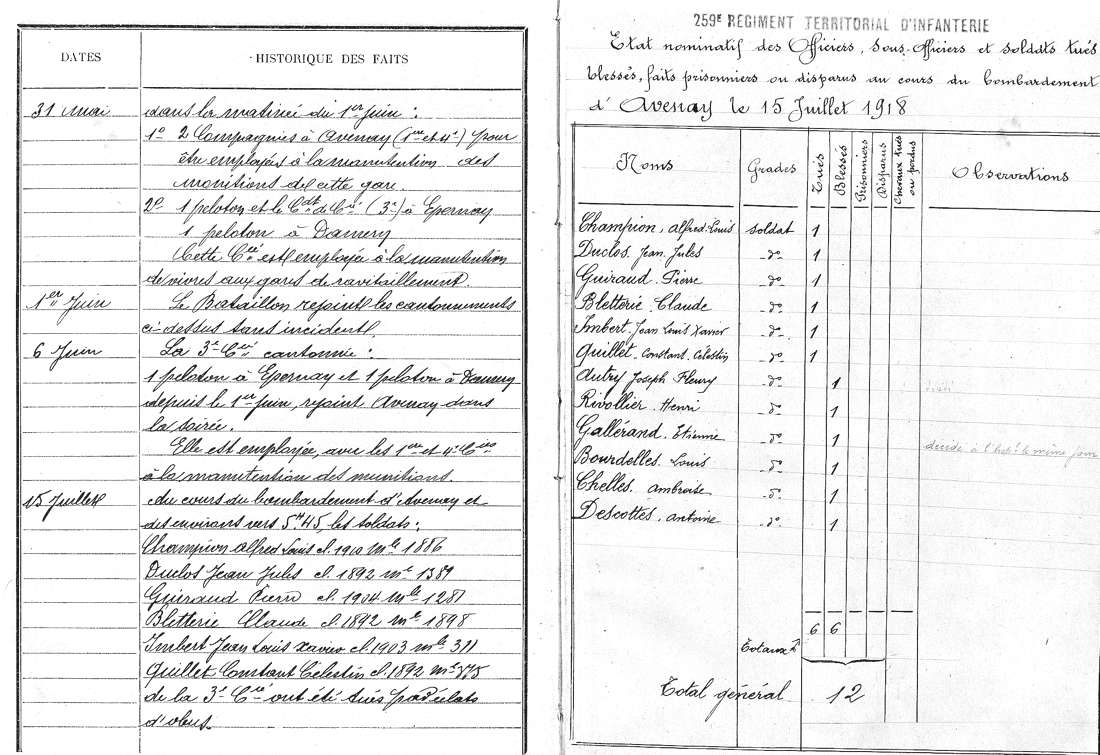 DATES
HISTORIQUE DES FAITS
31 mai
dans la matinée du 1er Juin :
1º 2 Compagnies à Avenay (1ère et 4e) pour
être employées à la manutention des
munitions de cette gare.
2º 1 peloton et le Cdt de Cie (3e) à Epernay
1 peloton à Damery
Cette Cie est employée à la manutention
de vivres aux gares de ravitaillement.
1er Juin
Le Bataillon rejoint les cantonnements
ci-dessus sans incident.
6 Juin
La 3e Cie cantonnée :
1 peloton à Epernay et 1 peloton à Damery
depuis le 1er Juin, rejoint Avenay dans
la soirée.
Elle est employée, avec les 1ère et 4e Cies
à la manutention des munitions.
15 Juillet
Au cours du bombardement d'Avenay et
des environs vers 5H45, les soldats :
Champion Alfred Louis cl. 1900 Mle 1886
Duclos Jean Jules cl. 1892 Mle 1381
Guiraud Pierre cl. 1904 Mle 1281
Bletterie Claude cl. 1892 Mle 1898
Imbert Jean Louis Xavier cl. 1903 Mle 311
Quillet Constant Célestin cl. 1892 Mle
de la 3e Cie ont été tués par éclats
d'obus.
259E REGIMENT TERRITORIAL D'INFANTERIE
Etat nominatif des Officiers, Sous-Officiers et soldats tués
blessés, faits prisonniers ou disparus au cours du bombardement
d'Avenay le 15 Juillet 1918
Noms Grades Tués Blessés Prisonniers Disparus Chevaux tués ou perdus Observations
Champion. Alfred. Louis soldat 1
Duclos. Jean Jules do 1
Guiraud. Pierre do 1
Bletterie. Claude do 1
Imbert. Jean Louis Xavier do 1
Quillet. Constant. Célestin do 1
Autry Joseph Fleury do 1
Rivollier. Henri do 1
Gallérand. Etienne do 1 décédé à l'hôpl le même jour
Bourdelles. Louis do 1
Chelles. Ambroise do 1
Descottes. Antoine do 1
Totaux 6 6
Total général 12